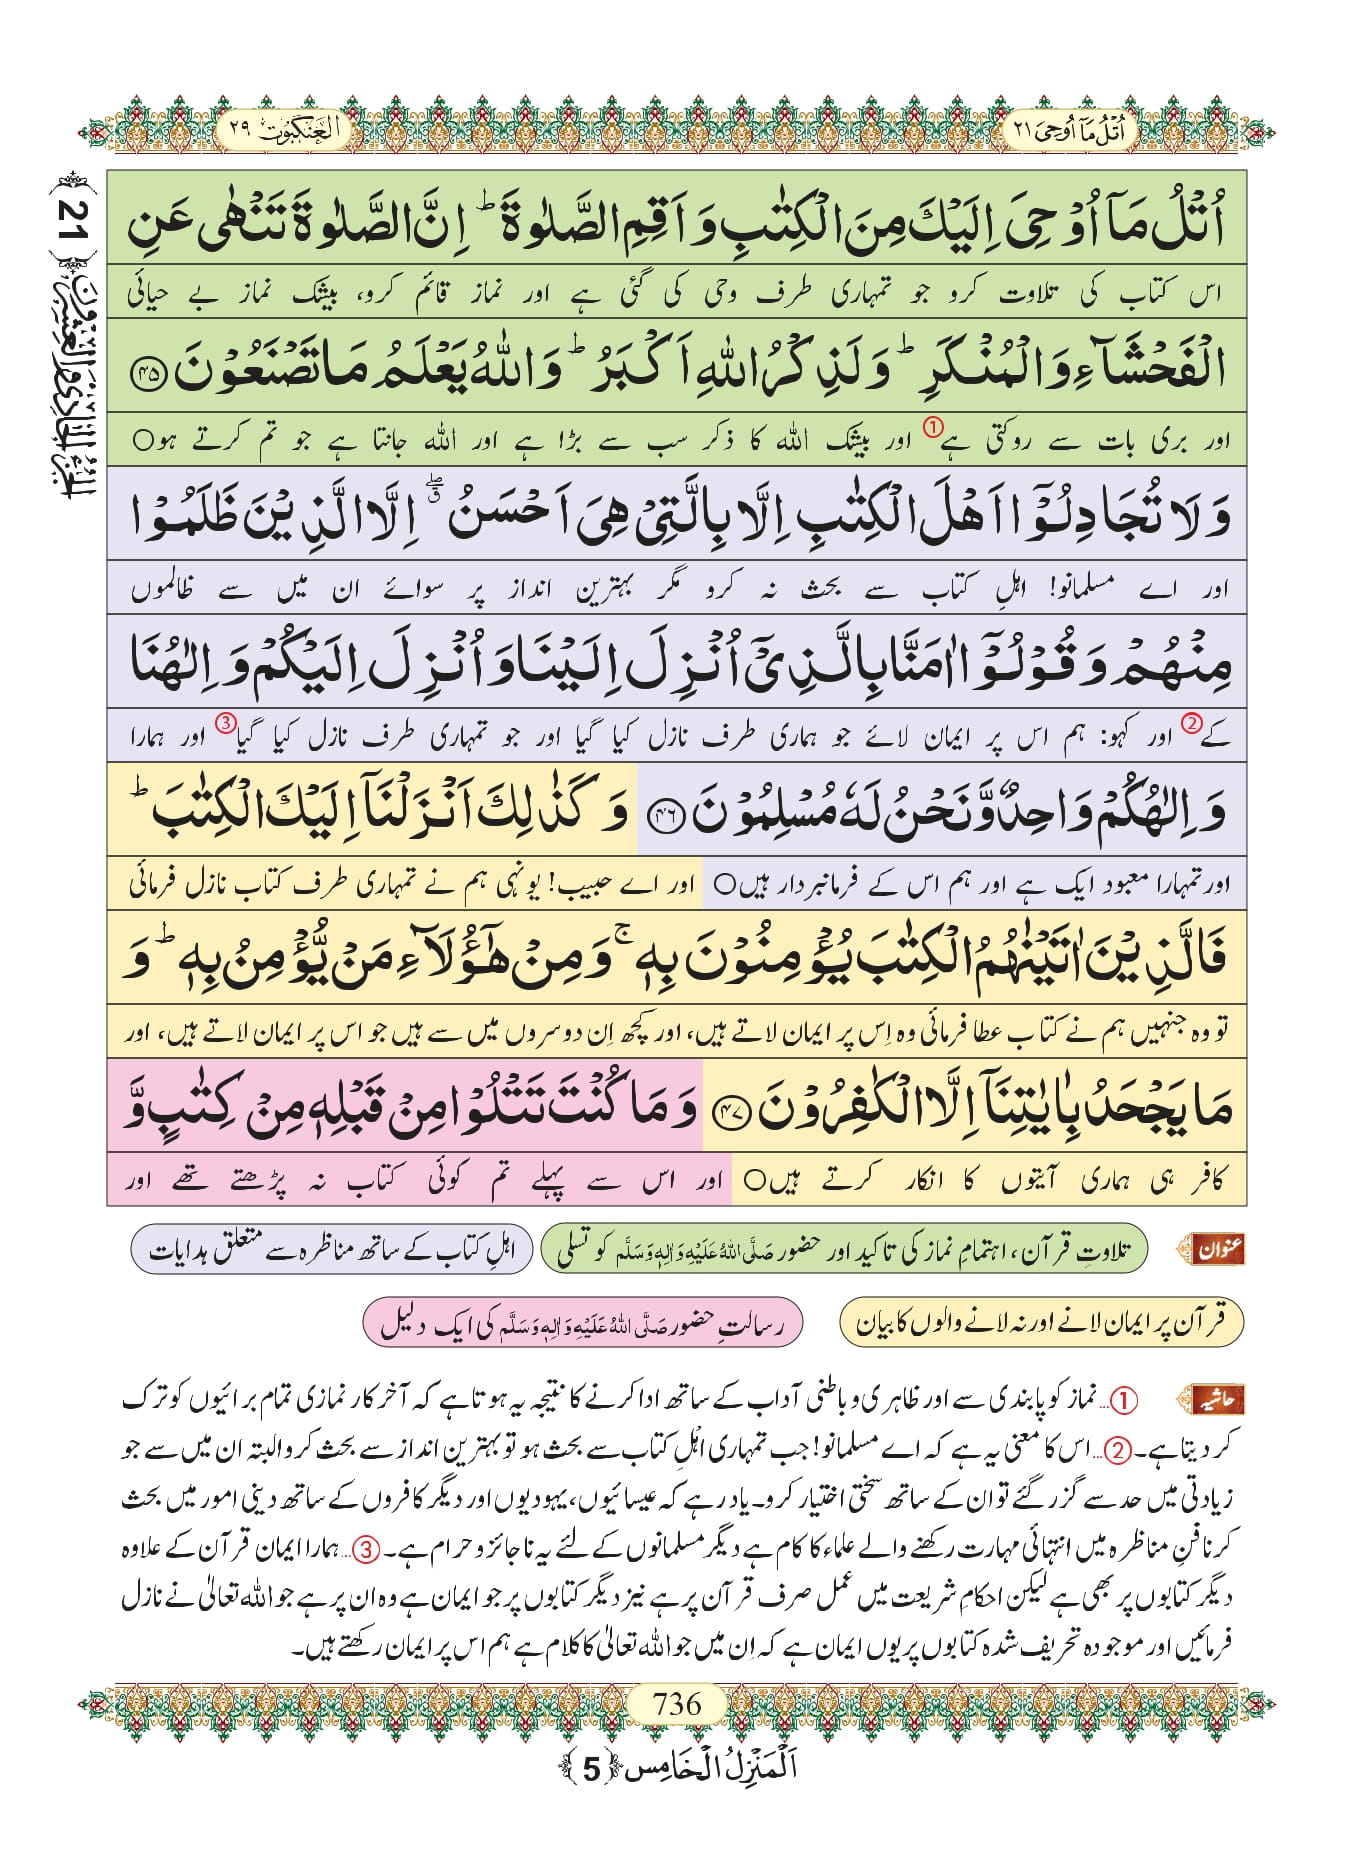 اُتۡلُ مَاۤ اُوۡحِیَ ۲۱
الۡعَنۡکَبُوۡت ۲۹
21
اَلْجُزْءُ الْحَادِیْ وَالْعِشْرُوْنَ
اُتْلُ مَاۤ اُوْحِیَ اِلَیْكَ مِنَ الْكِتٰبِ وَ اَقِمِ الصَّلٰوةَؕ-اِنَّ الصَّلٰوةَ تَنْهٰى عَنِ
اس کتاب کی تلاوت کرو جو تمہاری طرف وحی کی گئی ہے اور نماز قائم کرو، بیشک نماز بے حیائی
الْفَحْشَآءِ وَ الْمُنْكَرِؕ-وَ لَذِكْرُ اللّٰهِ اَكْبَرُؕ-وَ اللّٰهُ یَعْلَمُ مَا تَصْنَعُوْنَ ﴿۴۵﴾
اور بری بات سے روکتی ہے① اور بیشک اللہ کا ذکر سب سے بڑا ہے اور اللہ جانتا ہے جو تم کرتے ہو○
وَ لَا تُجَادِلُوْۤا اَهْلَ الْكِتٰبِ اِلَّا بِالَّتِیْ هِیَ اَحْسَنُ ﳓ اِلَّا الَّذِیْنَ ظَلَمُوْا
اور اے مسلمانو! اہلِ کتاب سے بحث نہ کرو مگر بہترین انداز پر سوائے ان میں سے ظالموں
مِنْهُمْ وَ قُوْلُوْۤا اٰمَنَّا بِالَّذِیْۤ اُنْزِلَ اِلَیْنَا وَ اُنْزِلَ اِلَیْكُمْ وَ اِلٰهُنَا
کے② اور کہو: ہم اس پر ایمان لائے جو ہماری طرف نازل کیا گیا اور جو تمہاری طرف نازل کیا گیا③ اور ہمارا
وَ اِلٰهُكُمْ وَاحِدٌ وَّ نَحْنُ لَهٗ مُسْلِمُوْنَ ﴿۴۶﴾ وَ كَذٰلِكَ اَنْزَلْنَاۤ اِلَیْكَ الْكِتٰبَؕ
اور تمہارا معبود ایک ہے اور ہم اس کے فرمانبردار ہیں○ اور اے حبیب! یونہی ہم نے تمہاری طرف کتاب نازل فرمائی
فَالَّذِیْنَ اٰتَیْنٰهُمُ الْكِتٰبَ یُؤْمِنُوْنَ بِهٖۚ-وَ مِنْ هٰۤؤُلَآءِ مَنْ یُّؤْمِنُ بِهٖؕ-وَ
تو وہ جنہیں ہم نے کتاب عطا فرمائی وہ اِس پر ایمان لاتے ہیں، اور کچھ اِن دوسروں میں سے ہیں جو اس پر ایمان لاتے ہیں، اور
مَا یَجْحَدُ بِاٰیٰتِنَاۤ اِلَّا الْكٰفِرُوْنَ ﴿۴۷﴾ وَ مَا كُنْتَ تَتْلُوْا مِنْ قَبْلِهٖ مِنْ كِتٰبٍ وَّ
کافر ہی ہماری آیتوں کا انکار کرتے ہیں○ اور اس سے پہلے تم کوئی کتاب نہ پڑھتے تھے اور
عنوان تلاوتِ قرآن، اہتمامِ نماز کی تاکید اور حضور صَلَّی اللّٰهُ عَلَیْهِ وَاٰلِهٖ وَسَلَّم کو تسلی اہلِ کتاب کے ساتھ مناظرہ سے متعلق ہدایات
قرآن پر ایمان لانے اور نہ لانے والوں کا بیان رسالتِ حضور صَلَّی اللّٰهُ عَلَیْهِ وَاٰلِهٖ وَسَلَّم کی ایک دلیل
حاشیہ ①... نماز کو پابندی سے اور ظاہری و باطنی آداب کے ساتھ ادا کرنے کا نتیجہ یہ ہوتا ہے کہ آخر کار نمازی تمام برائیوں کو ترک
کر دیتا ہے۔ ②... اس کا معنی یہ ہے کہ اے مسلمانو! جب تمہاری اہلِ کتاب سے بحث ہو تو بہترین انداز سے بحث کرو البتہ ان میں سے جو
زیادتی میں حد سے گزر گئے تو ان کے ساتھ سختی اختیار کرو۔ یاد رہے کہ عیسائیوں، یہودیوں اور دیگر کافروں کے ساتھ دینی امور میں بحث
کرنا فنِ مناظرہ میں انتہائی مہارت رکھنے والے علماء کا کام ہے دیگر مسلمانوں کے لئے یہ ناجائز و حرام ہے۔ ③... ہمارا ایمان قرآن کے علاوہ
دیگر کتابوں پر بھی ہے لیکن احکامِ شریعت میں عمل صرف قرآن پر ہے نیز دیگر کتابوں پر جو ایمان ہے وہ ان پر ہے جو اللہ تعالیٰ نے نازل
فرمائیں اور موجودہ تحریف شدہ کتابوں پر یوں ایمان ہے کہ اِن میں جو اللہ تعالیٰ کا کلام ہے ہم اس پر ایمان رکھتے ہیں۔
736
اَلْمَنْزِلُ الْخَامِس ﴿5﴾